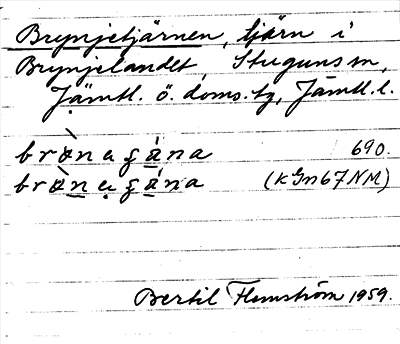 Brynjetjärnen, tjärn i
Brynjelandet, Stuguns sn,
Jämtl. ö. doms. tg, Jämtl. l.
690.
(KGn67NM)
Bertil Flemström 1959.